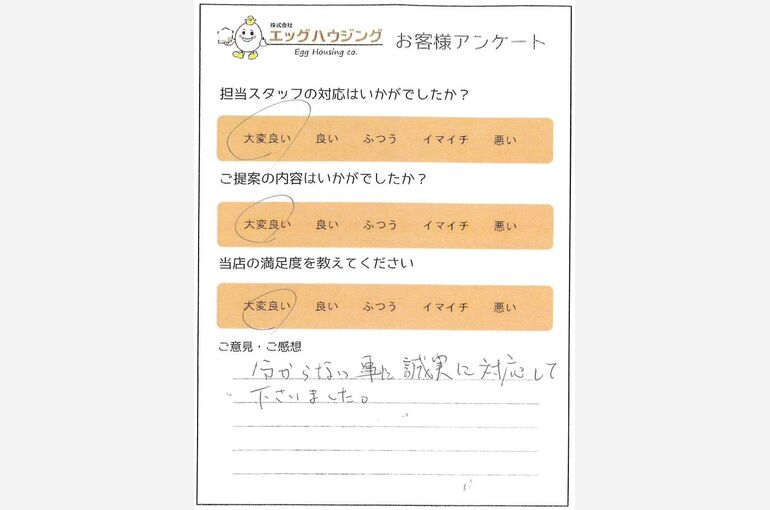 株式会社
エッグハウジング
Egg Housing co.
お客様アンケート
担当スタッフの対応はいかがでしたか？
大変良い 良い ふつう イマイチ 悪い
ご提案の内容はいかがでしたか？
大変良い 良い ふつう イマイチ 悪い
当店の満足度を教えてください
大変良い 良い ふつう イマイチ 悪い
ご意見・ご感想
分からない事に誠実に対応して
下さいました。